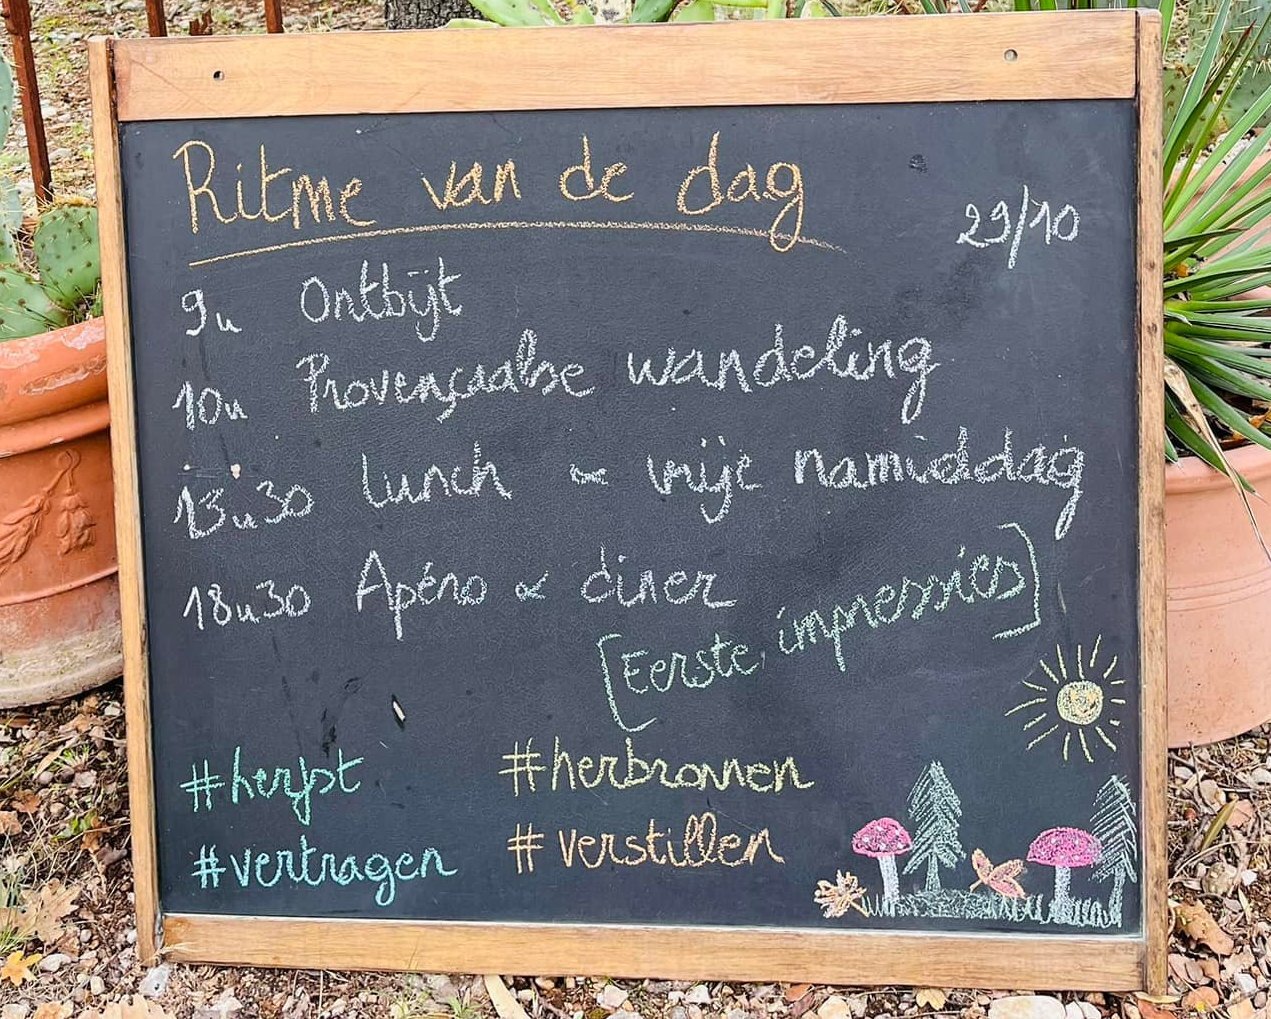 Ritme van de dag
29/10
9u Ontbijt
10u Provençaalse wandeling
13u30 lunch & vrije namiddag
18u30 Apéro & diner
[Eerste impressies]
#herfst #herbronnen
#vertragen #verstillen